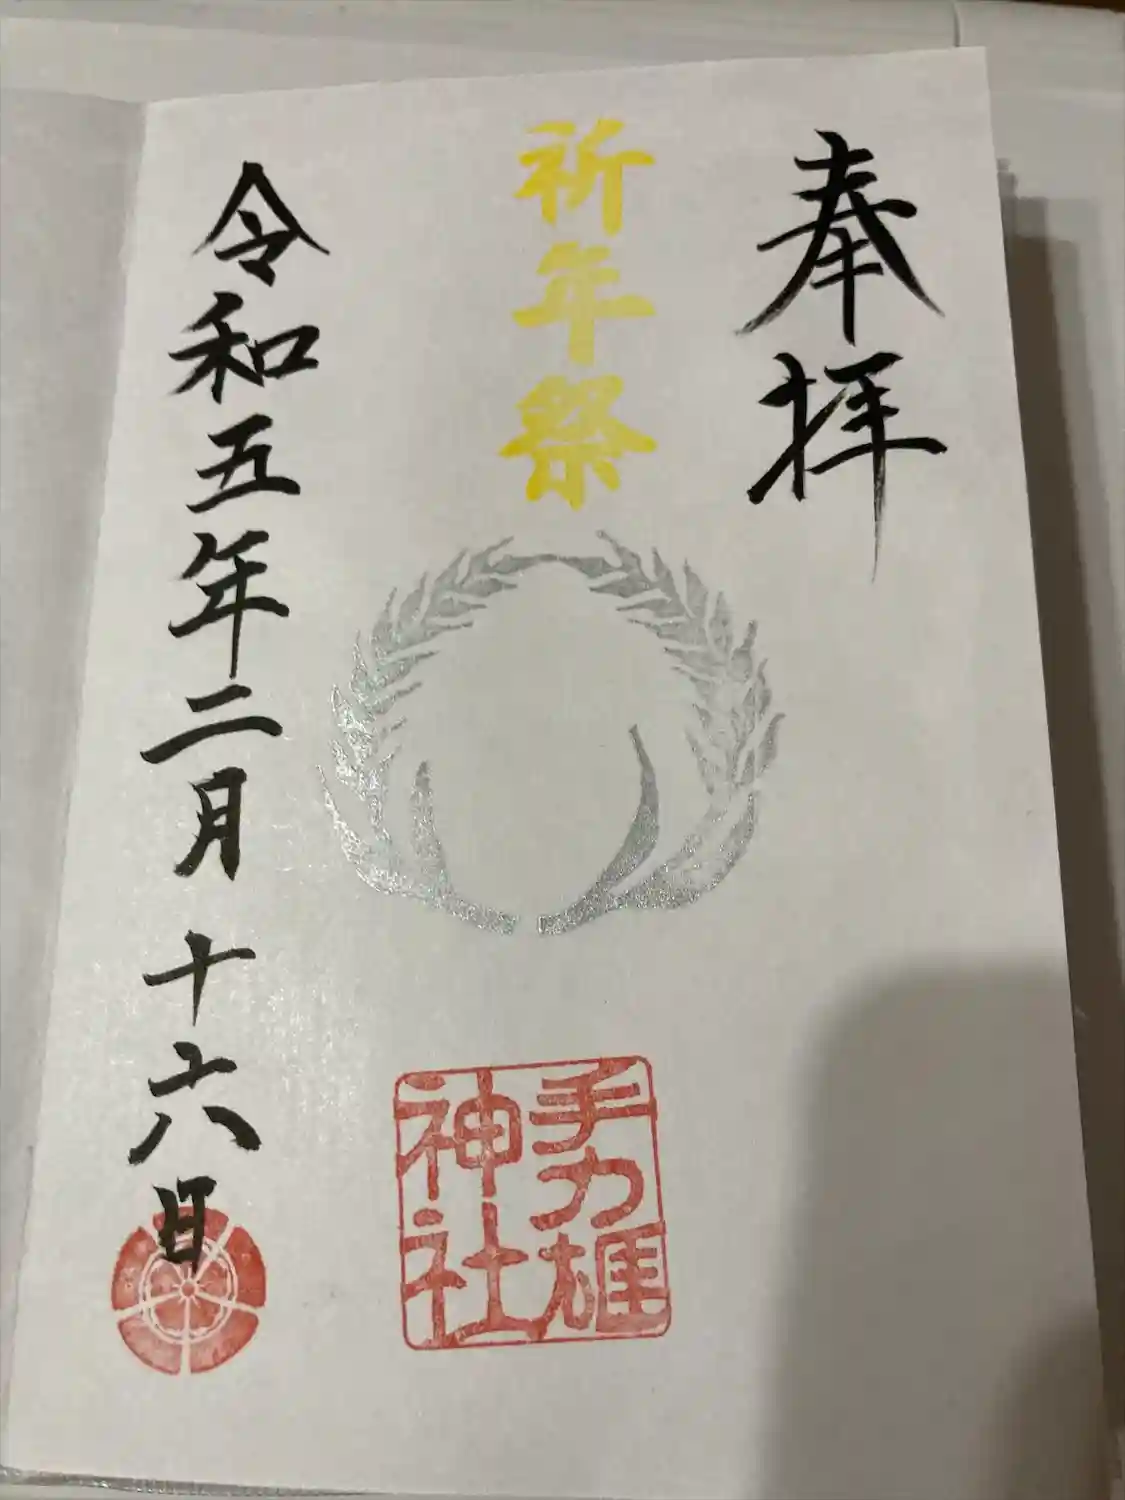 奉拝
祈年祭
手力雄
神社
令和五年二月十六日